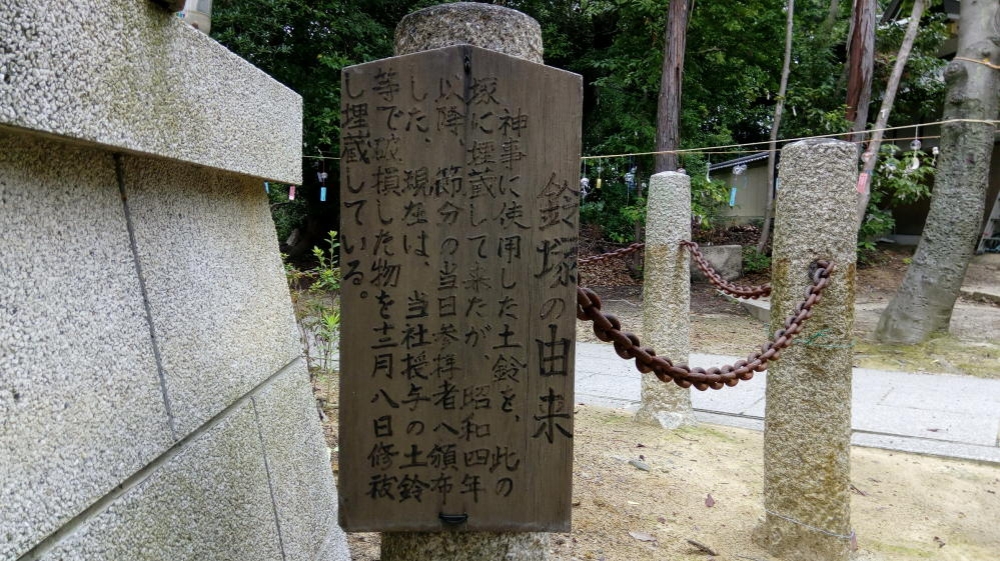 鈴塚の由来
神事に使用した土鈴を、此の
塚に埋蔵して来たが、昭和四年
以降、節分の当日参拝者へ頒布
した、現在は、当社授与の土鈴
等で破損した物を十二月八日修祓
し埋蔵している。